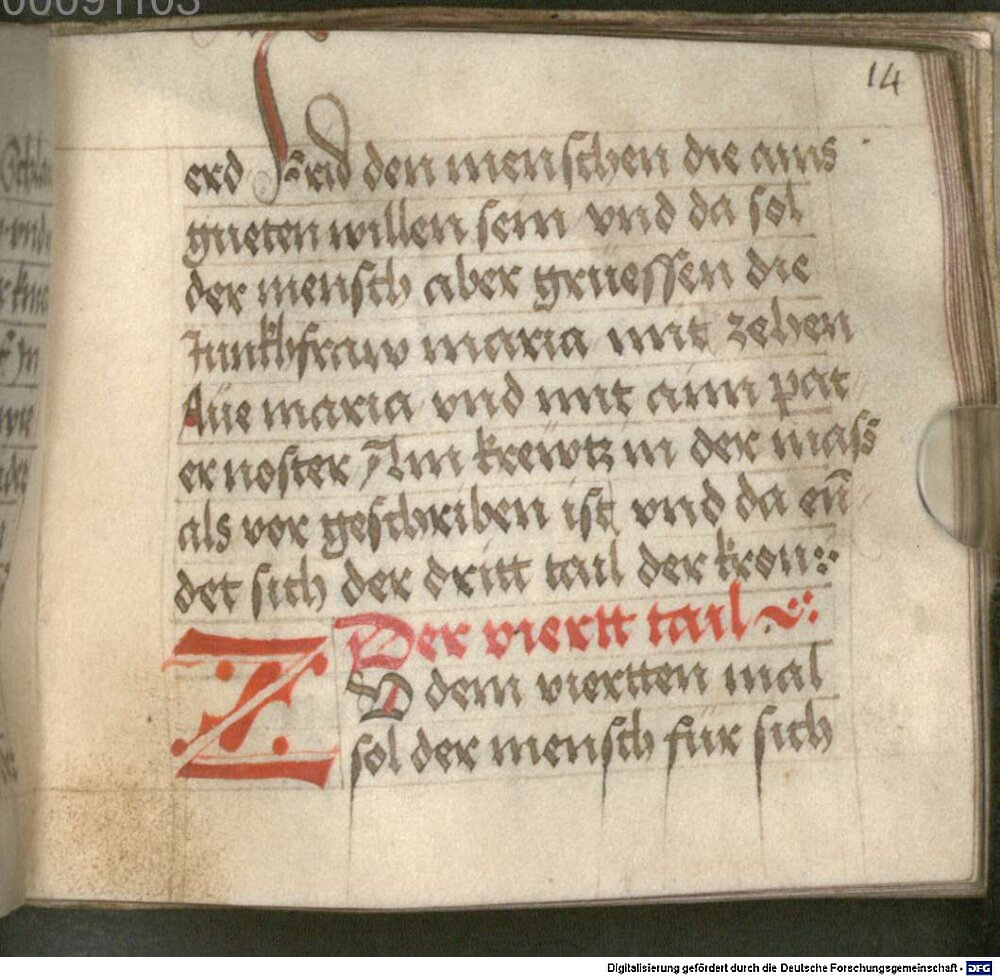 00091103
14
erd Frid den menschen die ains
gueten willen sein vnd da sol
der mensch aber gruessen die
Junkhfraw maria mit zehen
Aue maria vnd mit aim pat
er noster Am krewtz in der mass
als vor geschriben ist vnd da eñ
det sich der dritt tail der kron
Der viertt tail
ZV dem viertten mal
sol der mensch für sich
Digitalisierung gefördert durch die Deutsche Forschungsgemeinschaft - DFG